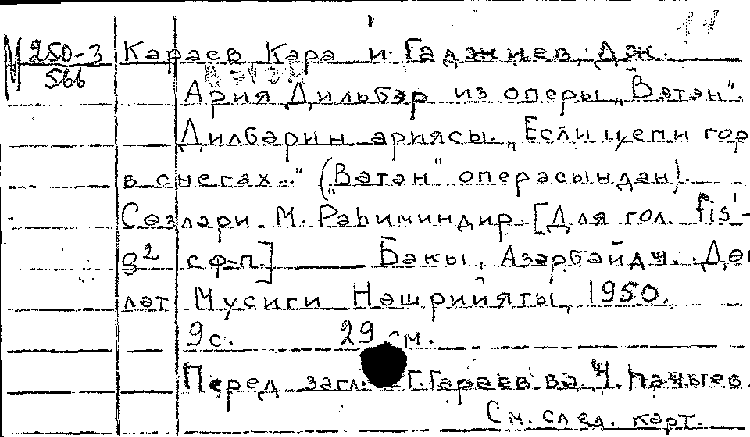 11
М 250-3 Караев, Кара и Гаджиев, Дж.
566
Ария Дилбəр из оперы „Вəтəн".
Дилбəрин ариясы. „Если цепи гор
в снегах.." („Вəтəн" операсындан).
Сөзлəри М. Рəһиминдир. [Для гол. fis'-
g² с ф-п.] Бакы, Азəрбайҹ. Дөв
лəт Мусиги Нəшрийяты, 1950.
9 с. 29 см.
Перед загл. Г. Гараев вə Ҹ. Һаҹыев.
См. след. карт.